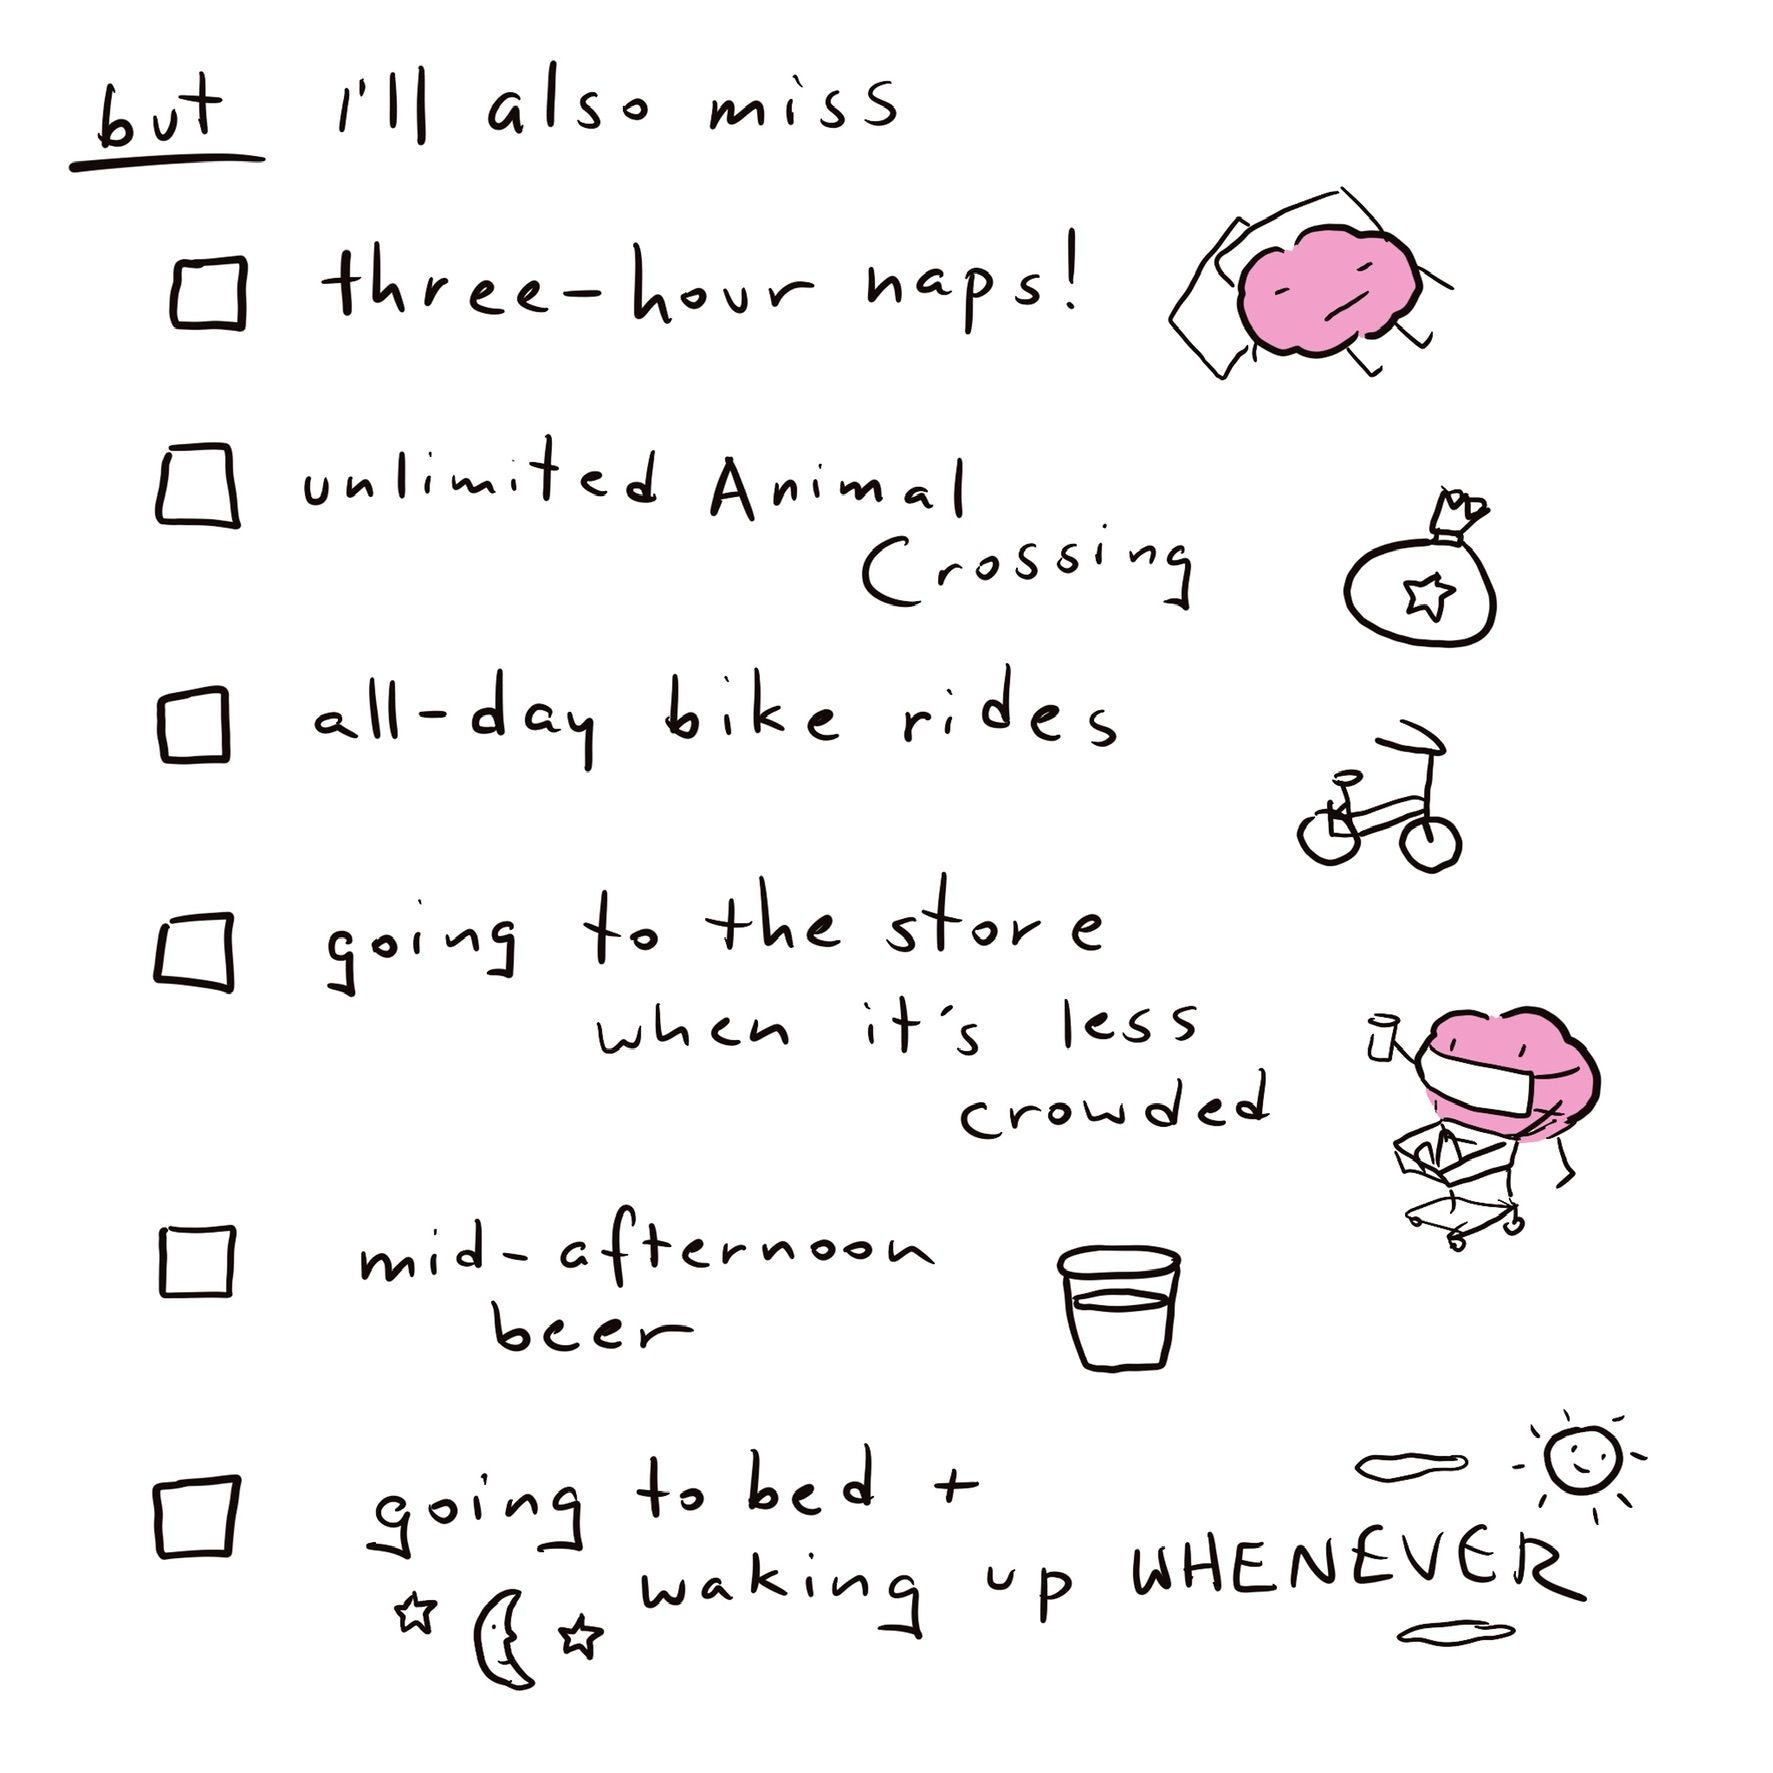 but i'll also miss
three-hour naps!
unlimited Animal
Crossing
all-day bike rides
going to the store
when it's less
crowded
mid-afternoon
beer
going to bed +
waking up WHENEVER